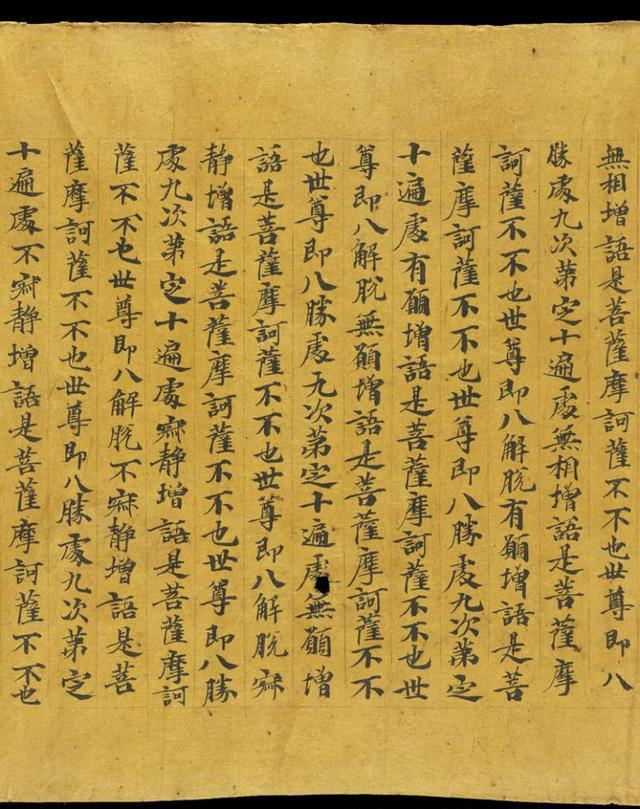 無相增語是菩薩摩訶薩不不也世尊即八
勝處九次第定十遍處無相增語是菩薩摩
訶薩不不也世尊即八解脫有願增語是菩
薩摩訶薩不不也世尊即八勝處九次第定
十遍處有願增語是菩薩摩訶薩不不也世
尊即八解脫無願增語是菩薩摩訶薩不不
也世尊即八勝處九次第定十遍處無願增
語是菩薩摩訶薩不不也世尊即八解脫寂
静增語是菩薩摩訶薩不不也世尊即八勝
處九次第定十遍處寂静增語是菩薩摩訶
薩不不也世尊即八解脫不寂静增語是菩
薩摩訶薩不不也世尊即八勝處九次第定
十遍處不寂静增語是菩薩摩訶薩不不也